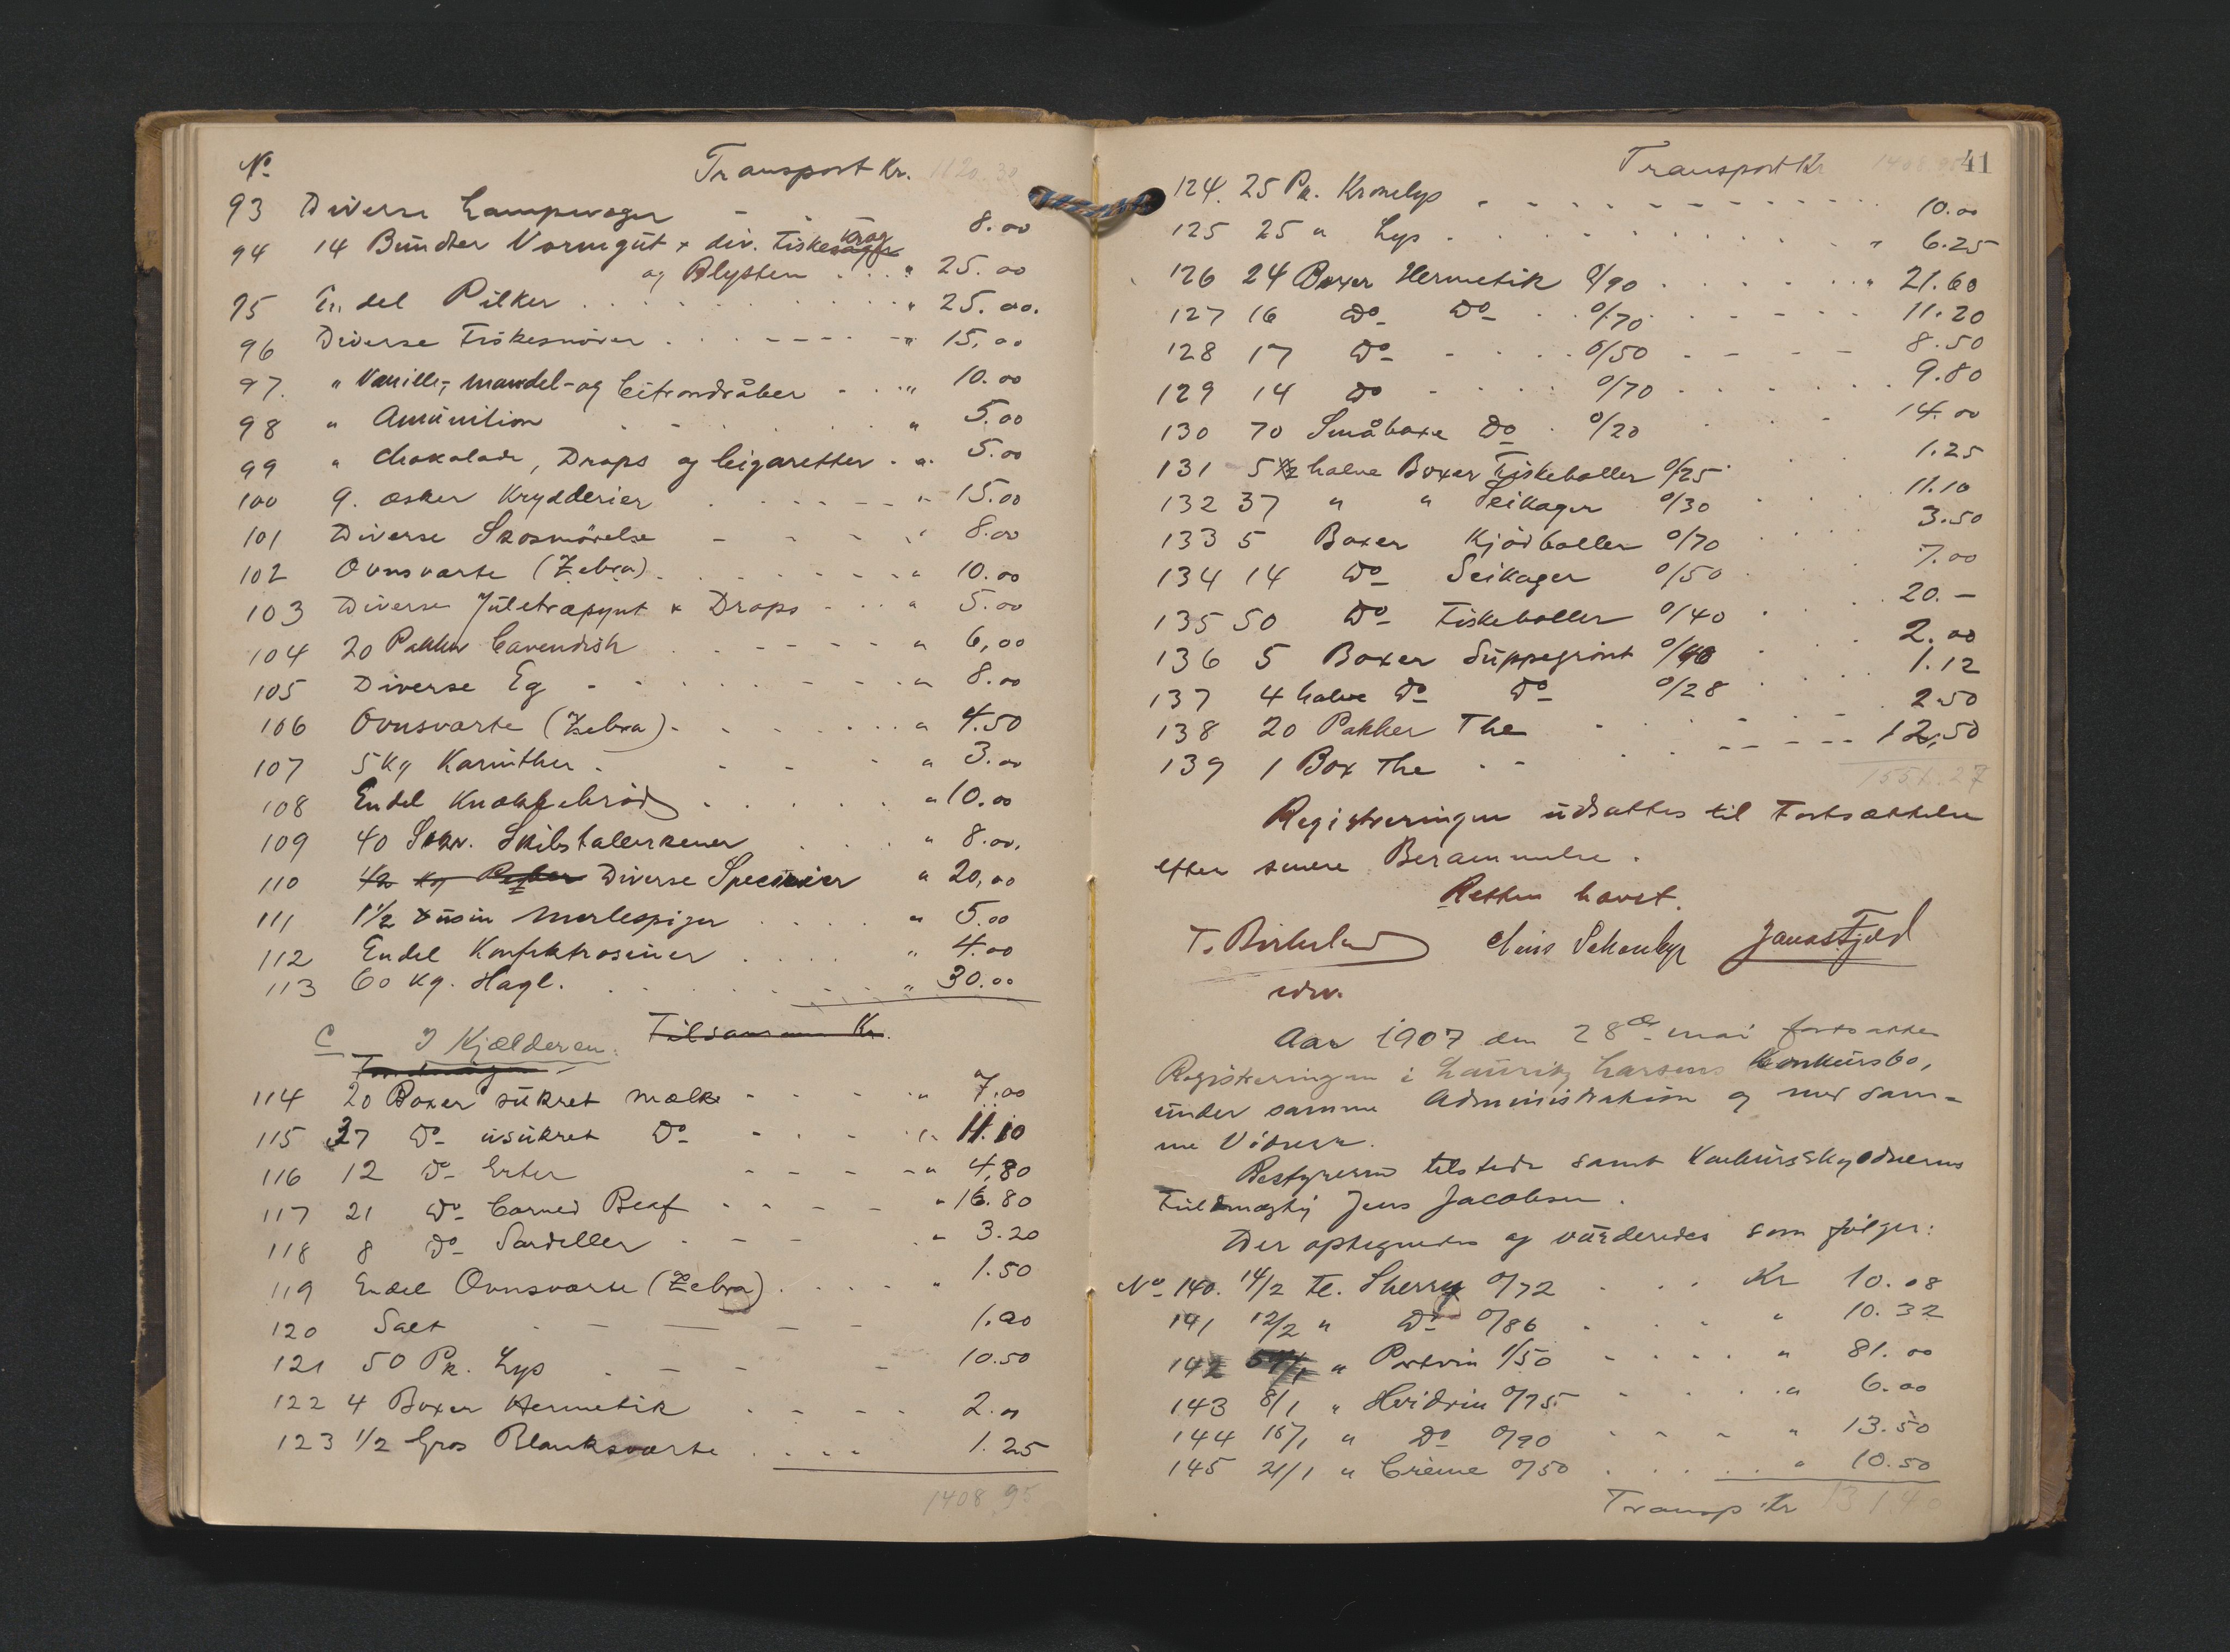 No Transport Kr. 1120.30
93 Diverse Lampevæger - - 8.00
94 14 Bundter Vormgut + div. Fiskekrog
og Blysten . . . " 25.00
95 En del Pilker . . . " 25.00.
96 Diverse Fiskesnører . . . " 15,00
97. " Vanille-, Mandel- og Citrondråber - . . " 10.00
98 " Amunition . . . " 5.00
99 " Chokolade, Drops og Cigaretter . " 5.00
100 9. æsker Krydderier . . . " 15.00
101 Diverse Skosmörelse - - - " 8.00
102 Ovnsværte (Zebra) . . . " 10.00
103 Diverse Juletræpynt & Drops - . . " 5.00
104 20 Pakker Cavendish . . . " 6,00
105 Diverse Eg - . . . " 8.00
106 Ovnsværte (Zebra) - . . . " 4.50
107 5 Kg Karinther - . . . " 3.00
108 Endel Knækkebrød . . . " 10.00
109 40 Skibstallerkener . . . " 8.00.
110 1/2 kg Peber Diverse Specerier " 20,00
111 1 1/2 dusin Merlespiger . . . " 5.00
112 Endel Konfektrosiner . . . " 4.00
113 60 Kg. Hagl. . . . " 30.00
Tilsammen Kr.
C I Kjælderen.
114 20 Boxer sukret Mælk - . . . " 7.00
115 37 Do usukret Do - . . . " 11.10
116 12 Do Erter - - - - " 4,80
117 21 Do Corned Beaf - - - - " 16.80
118 8 Do Sardeller - - - " 3.20
119 Endel Ovnsværte (Zebra) . . . " 1.50
120 Salt - - - - - 1.00
121 50 Pk. Lys . - - - 10.50
122 4 Boxer Hermetik . - - - 2.00
123 1/2 Gros Blanksværte . . . . 1.25
1408.95
Transport Kr 1408.95 41
124. 25 Pk. Kronelys . . . 10.00
125 25 " Lys . . . " 6.25
126 24 Boxer Hermetik 0/90 . . . " 21.60
127 16 Do Do . . 0/70 . . . 11.20
128 17 Do - . . . 0/50 - - - 8.50
129 14 Do - . . . 0/70 . . . 9.80
130 70 Småboxe Do . 0/20 . . 14.00
131 5 halve Boxer Fiskeboller 0/25 . . 1.25
132 37 " " Seikager 0/30 . . . 11.10
133 5 Boxer Kjödboller 0/70 . . . 3.50
134 14 Do Seikager 0/50 . . . 7.00
135 50 Do Fiskeboller 0/40 . . . 20.-
136 5 Boxer Suppegrönt 0/40 . . . 2.00
137 4 halve Do Do 0/28 . . . 1.12
138 20 Pakker The . . . 2.50
139 1 Box The . . . 12,50
1551.27
Registreringen udsattes til Fortsættelse
efter senere Berammelse.
Retten hævet.
T. Birkeland Jonas Fjeld
edsv.
Aar 1907 den 28de mai fortsattes
Registreringen i Lauritz Larsens Konkursbo,
under samme Administration og med sam-
me Vidner.
Bestyreren tilstede samt Konkursskyldnerens
Fuldmægtig Jens Jacobsen.
Der optegnedes og vurderedes som følger:
No 140. 14/2 Fl. Sherry 0/72 . . . Kr 10.08
141 12/2 " Do 0/86 . . . " 10.32
142 54/1 " Portvin 1/50 - . . . " 81.00
143 8/1 " Hvidvin 0/75 - . . . " 6.00
144 15/1 " Do 0/90 - - - " 13.50
145 21/1 " Crème 0/50 . . . " 10.50
Transp Kr 131.40